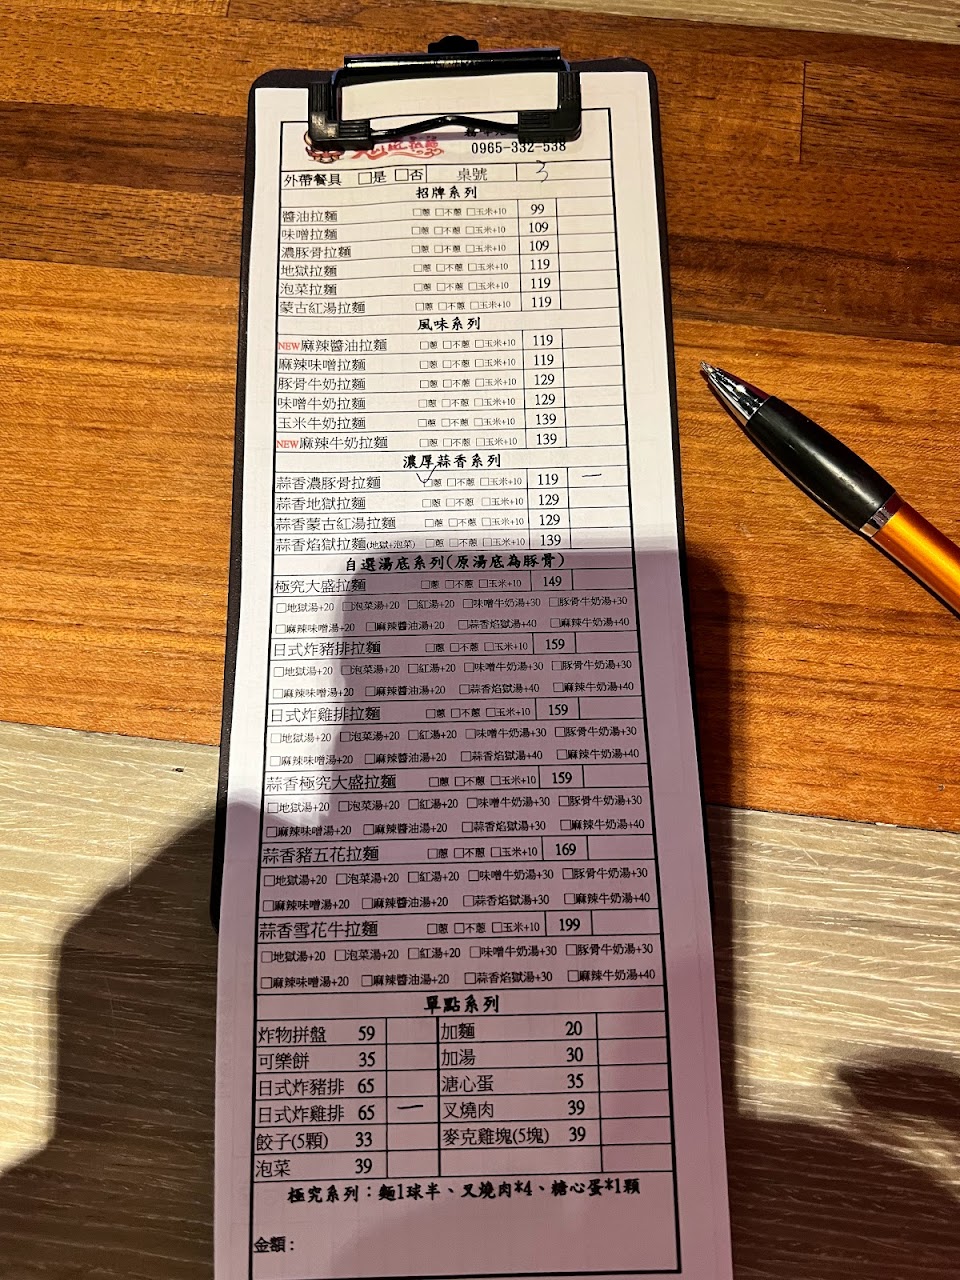 0965-332-538
外帶餐具 □是 □否 桌號 3
招牌系列
醬油拉麵 □蔥 □不蔥 □玉米+10 99
味噌拉麵 □蔥 □不蔥 □玉米+10 109
濃豚骨拉麵 □蔥 □不蔥 □玉米+10 109
地獄拉麵 □蔥 □不蔥 □玉米+10 119
泡菜拉麵 □蔥 □不蔥 □玉米+10 119
蒙古紅湯拉麵 □蔥 □不蔥 □玉米+10 119
風味系列
NEW麻辣醬油拉麵 □蔥 □不蔥 □玉米+10 119
麻辣味噌拉麵 □蔥 □不蔥 □玉米+10 119
豚骨牛奶拉麵 □蔥 □不蔥 □玉米+10 129
味噌牛奶拉麵 □蔥 □不蔥 □玉米+10 129
玉米牛奶拉麵 □蔥 □不蔥 □玉米+10 139
NEW麻辣牛奶拉麵 □蔥 □不蔥 □玉米+10 139
濃厚蒜香系列
蒜香濃豚骨拉麵 ☑蔥 □不蔥 □玉米+10 119 一
蒜香地獄拉麵 □蔥 □不蔥 □玉米+10 129
蒜香蒙古紅湯拉麵 □蔥 □不蔥 □玉米+10 129
蒜香焰獄拉麵(地獄+泡菜) □蔥 □不蔥 □玉米+10 139
自選湯底系列(原湯底為豚骨)
極究大盛拉麵 □蔥 □不蔥 □玉米+10 149
□地獄湯+20 □泡菜湯+20 □紅湯+20 □味噌牛奶湯+30 □豚骨牛奶湯+30
□麻辣味噌湯+20 □麻辣醬油湯+20 □蒜香焰獄湯+40 □麻辣牛奶湯+40
日式炸豬排拉麵 □蔥 □不蔥 □玉米+10 159
□地獄湯+20 □泡菜湯+20 □紅湯+20 □味噌牛奶湯+30 □豚骨牛奶湯+30
□麻辣味噌湯+20 □麻辣醬油湯+20 □蒜香焰獄湯+40 □麻辣牛奶湯+40
日式炸雞排拉麵 □蔥 □不蔥 □玉米+10 159
□地獄湯+20 □泡菜湯+20 □紅湯+20 □味噌牛奶湯+30 □豚骨牛奶湯+30
□麻辣味噌湯+20 □麻辣醬油湯+20 □蒜香焰獄湯+40 □麻辣牛奶湯+40
蒜香極究大盛拉麵 □蔥 □不蔥 □玉米+10 159
□地獄湯+20 □泡菜湯+20 □紅湯+20 □味噌牛奶湯+30 □豚骨牛奶湯+30
□麻辣味噌湯+20 □麻辣醬油湯+20 □蒜香焰獄湯+30 □麻辣牛奶湯+40
蒜香豬五花拉麵 □蔥 □不蔥 □玉米+10 169
□地獄湯+20 □泡菜湯+20 □紅湯+20 □味噌牛奶湯+30 □豚骨牛奶湯+30
□麻辣味噌湯+20 □麻辣醬油湯+20 □蒜香焰獄湯+30 □麻辣牛奶湯+40
蒜香雪花牛拉麵 □蔥 □不蔥 □玉米+10 199
□地獄湯+20 □泡菜湯+20 □紅湯+20 □味噌牛奶湯+30 □豚骨牛奶湯+30
□麻辣味噌湯+20 □麻辣醬油湯+20 □蒜香焰獄湯+30 □麻辣牛奶湯+40
單點系列
炸物拼盤 59 加麵 20
可樂餅 35 加湯 30
日式炸豬排 65 溏心蛋 35
日式炸雞排 65 一 叉燒肉 39
餃子(5顆) 33 麥克雞塊(5塊) 39
泡菜 39
極究系列：麵1球半、叉燒肉*4、糖心蛋*1顆
金額：